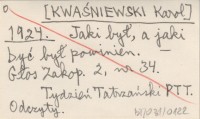 [KWAŚNIEWSKI Karol]
1924. Jaki był, a jaki
być był powinien.
Głos Zakop. 2, nr 34.
Tydzień Tatrzański PTT.
Odczyty.